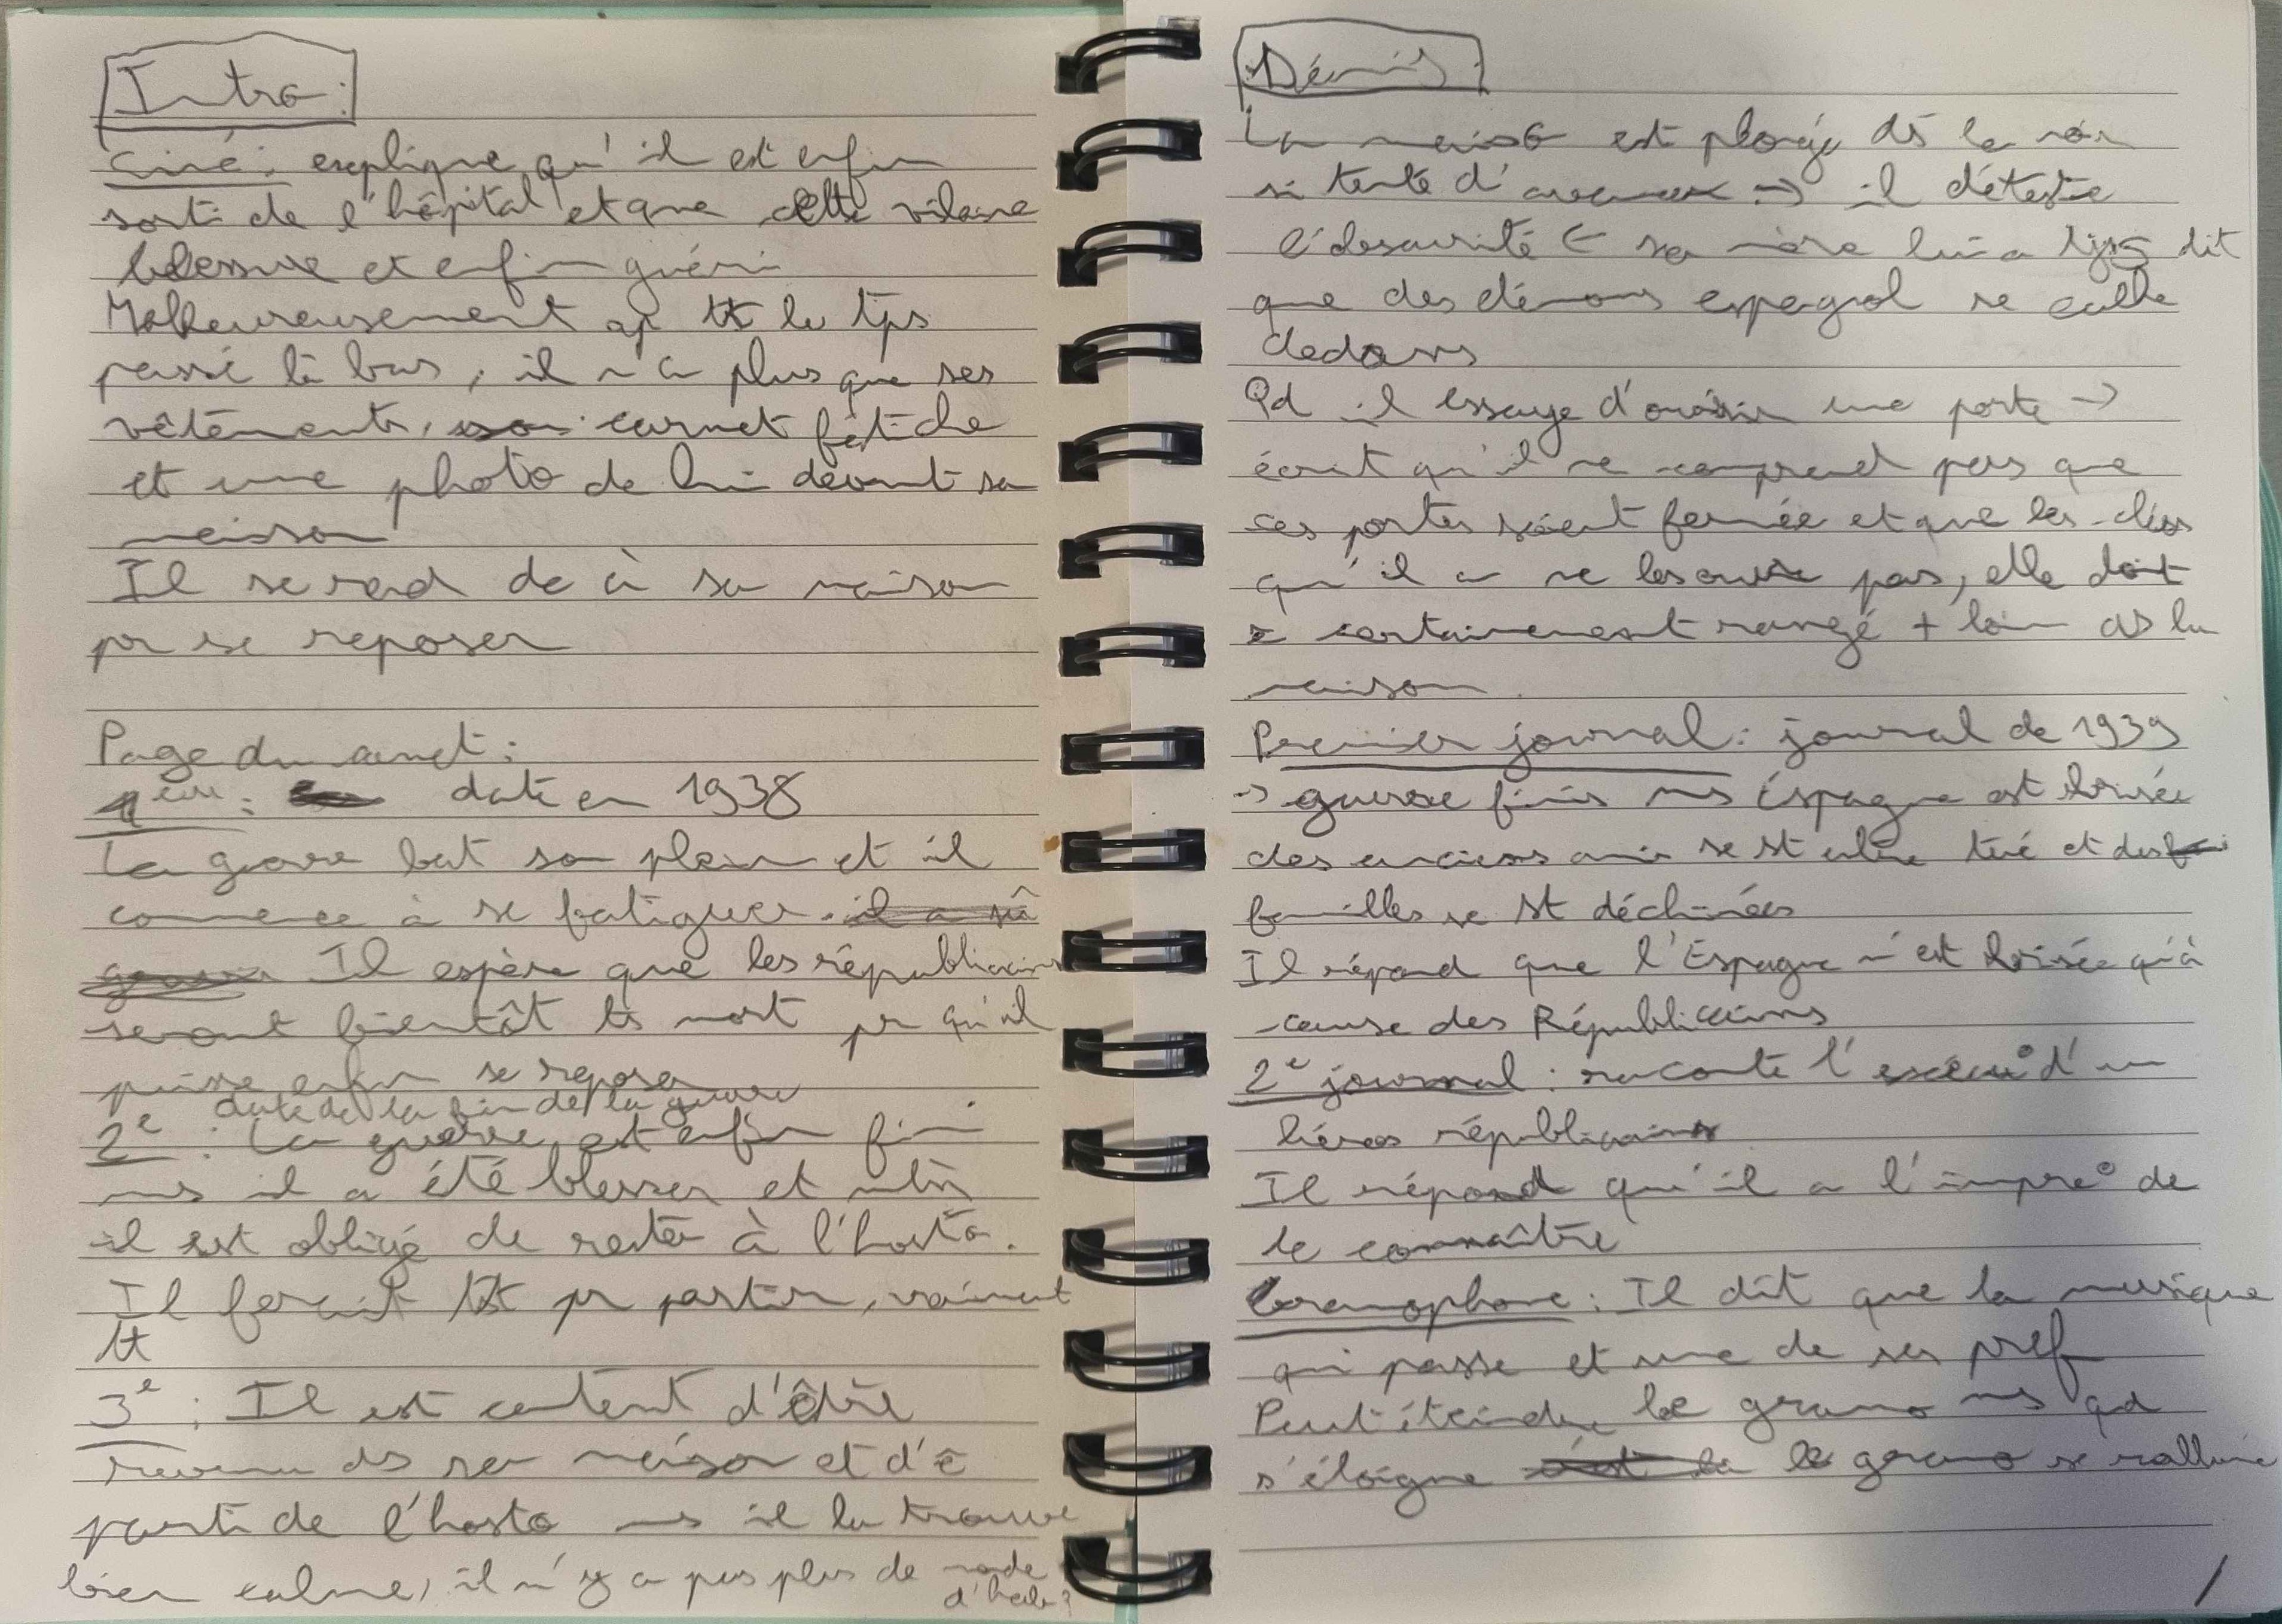 Intro :
Ciné : explique qu'il est enfin
sorti de l'hôpital et que cette vilaine
blessure et enfin guéri
Malheureusement ap tt le tps
passé là bas, il n'a plus que ses
vêtements, son carnet fétiche
et une photo de lui devant sa
maison
Il se rend de à sa maison
pr se reposer
Page du carnet :
1ère : date en 1938
La guerre bat son plein et il
commence à se fatiguer. il a sû
guerre Il espère que les républicains
seront bientôt ts mort pr qu'il
puisse enfin se reposer
date de la fin de la guerre
2e : La guerre est enfin fini
ms il a été blesser et
il est obligé de rester à l'hosto.
Il ferait tt pr partir, vraiment
tt
3e : Il est content d'être
revenu ds sa maison et d'ê
parti de l'hosto ms il la trouve
bien calme, il n'y a pas plus de monde
d'hab ?
Démis :
La maison est plongé ds le noir
si tente d'avancer → il déteste
l'obscurité ← sa mère lui a tjs dit
que des démons espagnol se cache
dedans
Qd il essaye d'ouvrir une porte →
écrit qu'il ne comprend pas que
ces portes soient fermée et que les clés
qu'il a ne les ouvre pas, elle doit
certainement rangé + loin ds la
maison.
Premier journal : journal de 1939
→ guerre finis ms Espagne est brisée
des anciens amis se st entre tué et des
familles se st déchirées
Il répond que l'Espagne n'est brisée qu'à
cause des Républicains
2e journal : raconte l'exécu° d'un
héros républicains
Il répond qu'il a l'impre° de
le connaître
Gramophone : Il dit que la musique
qui passe et une de ses pref
Peut éteindre le gramo ms qd
s'éloigne le gramo se rallume